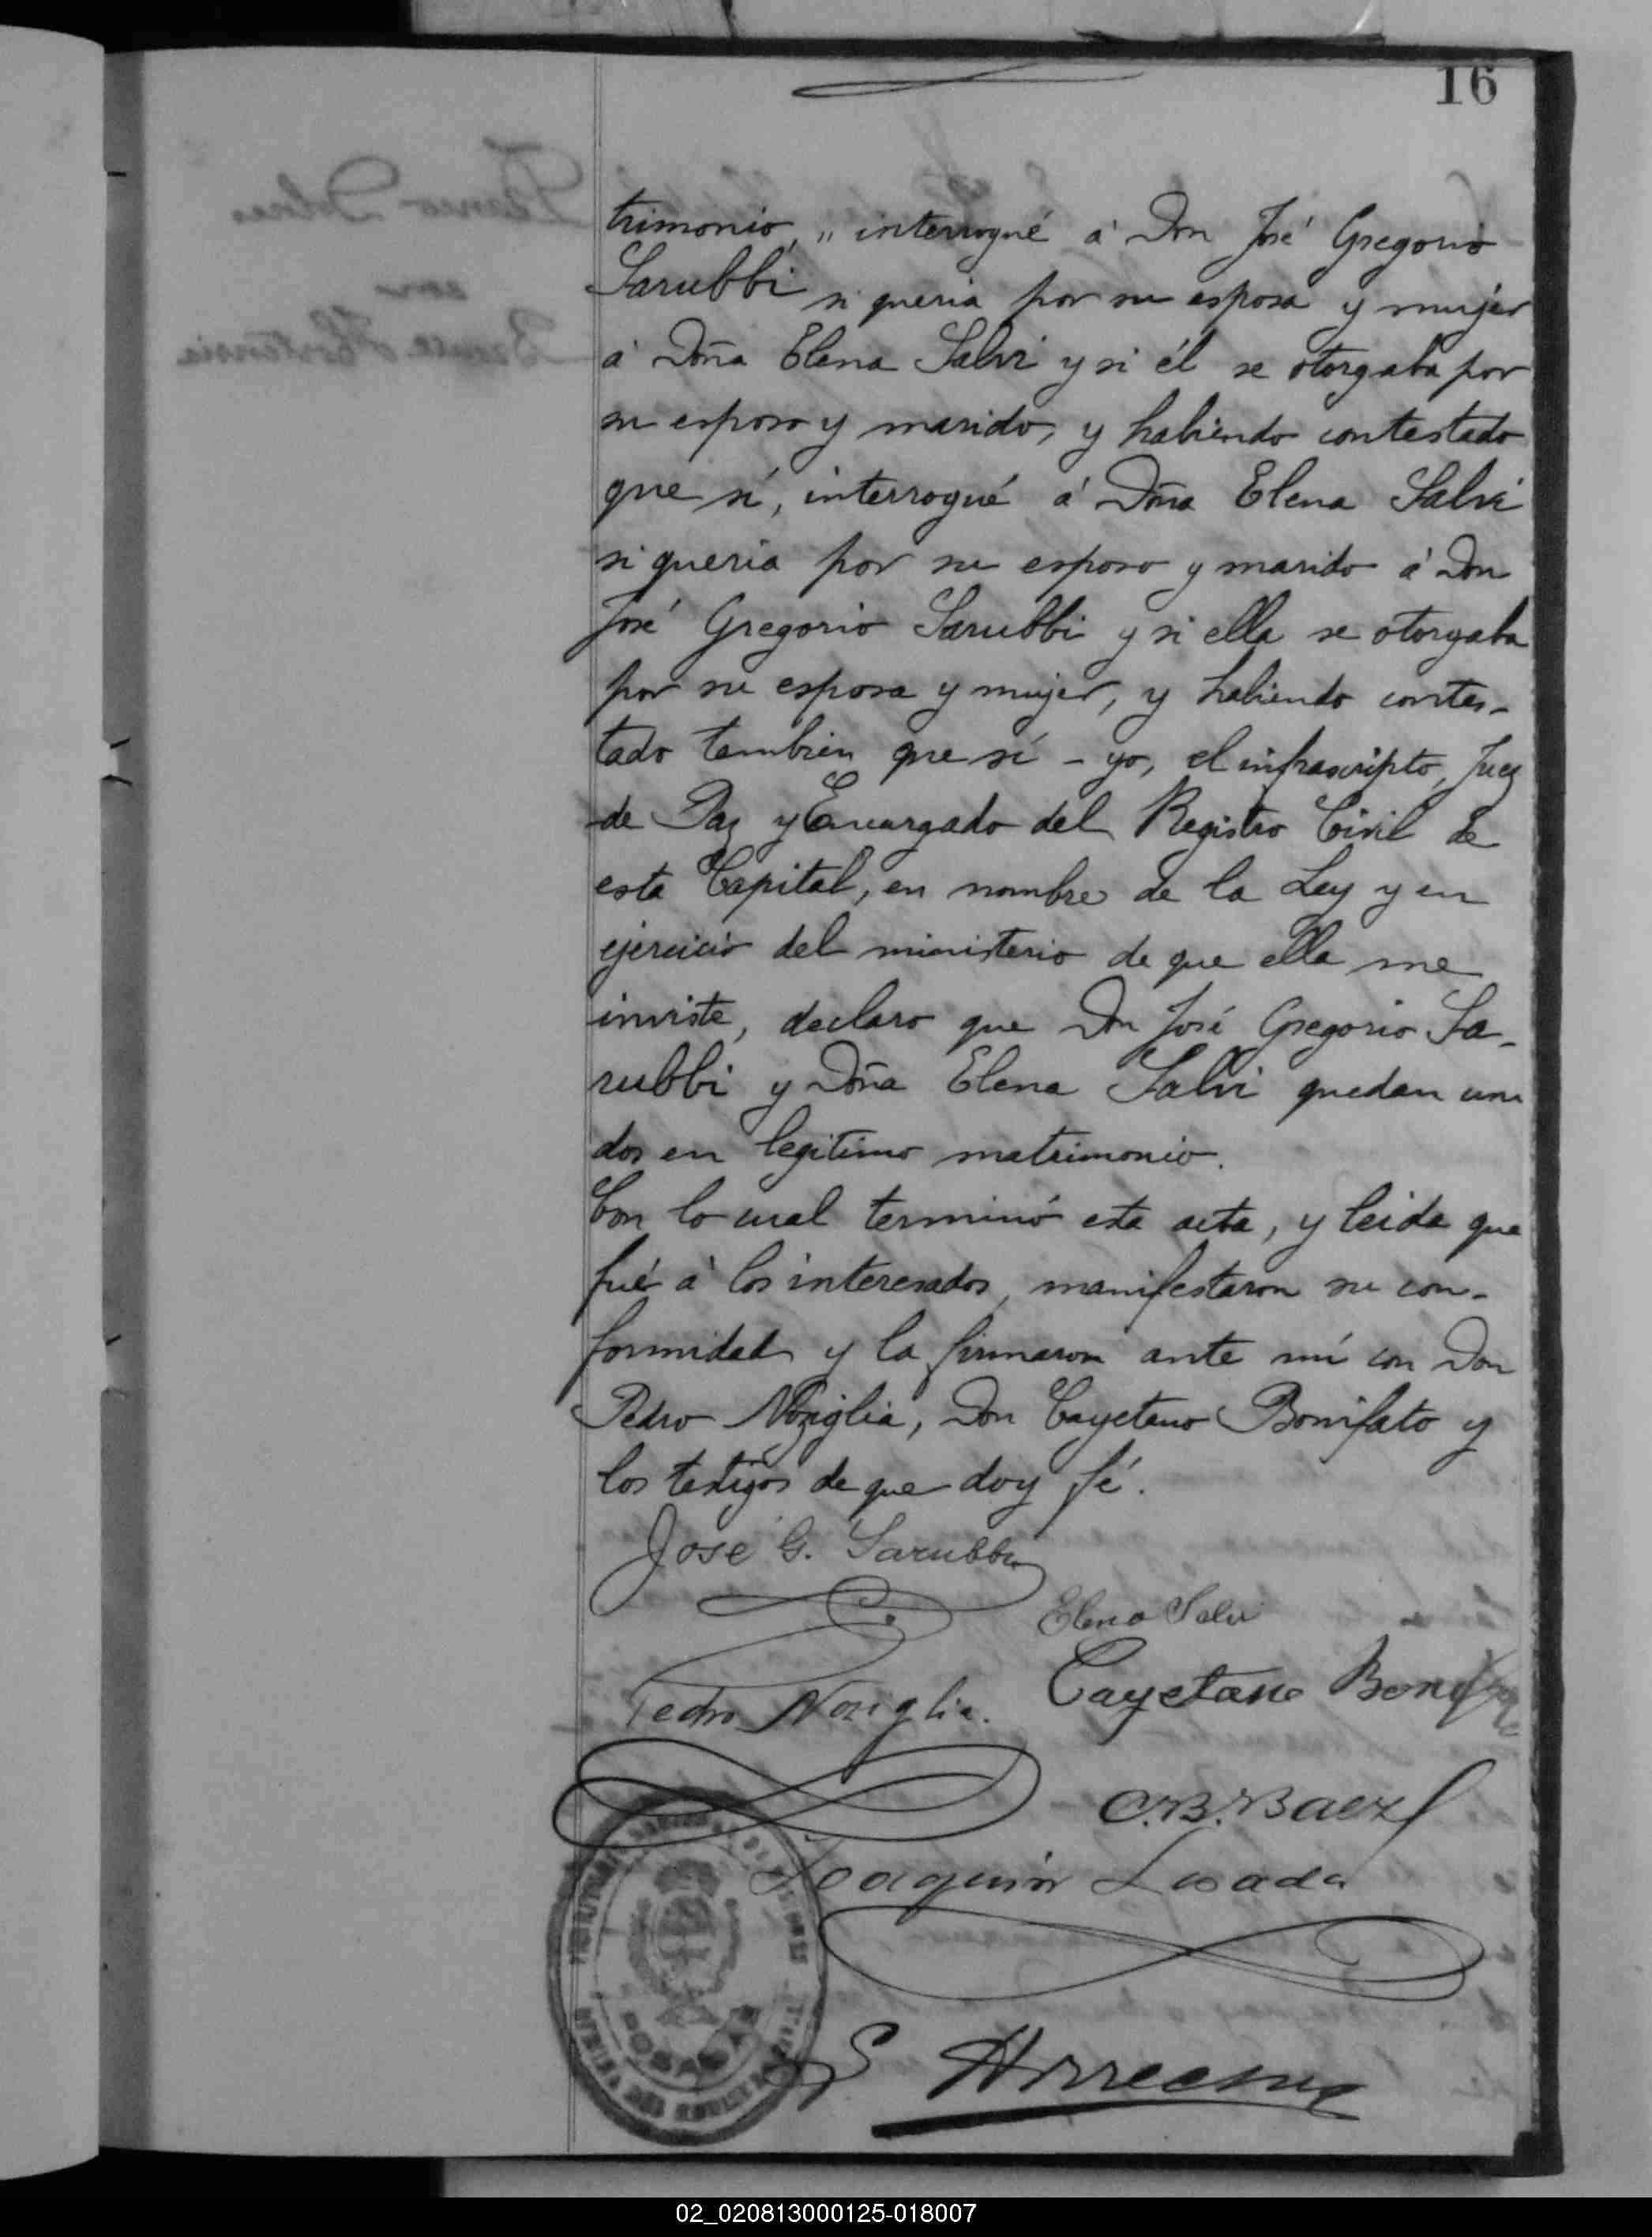 16
trimonio, " interrogué á Don José Gregorio
Sarubbi si queria por su esposa y mujer
á Doña Elena Salvi y si él se otorgaba por
su esposo y marido, y habiendo contestado
que sí, interrogué á Doña Elena Salvi
si queria por su esposo y marido á Don
José Gregorio Sarubbi y si ella se otorgaba
por su esposa y mujer, y habiendo contes-
tado tambien que sí - yo, el infrascripto, Juez
de Paz y Encargado del Registro Civil de
esta Capital, en nombre de la Ley y en
ejercicio del ministerio de que ella me
inviste, declaro que Don José Gregorio Sa-
rubbi y Doña Elena Salvi quedan uni
dos en legitimo matrimonio.
Con lo cual terminó esta acta, y leida que
fué á los interesados, manifestaron su con-
formidad y la firmaron ante mí con Don
Pedro Noziglia, Don Cayetano Bonifato y
los testigos de que doy fé.
José G. Sarubbi
Elena Salvi
Pedro Noziglia.
Cayetano
C.B. Baez
Joaquin Losada
POSADAS
02_020813000125-018007